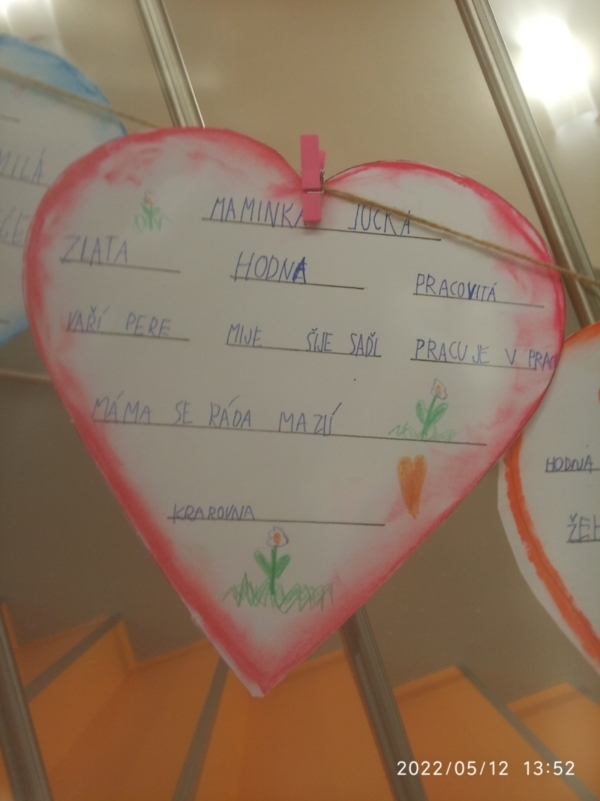 MAMINKA JUCKA
ZLATA HODNÁ PRACOVITÁ
VAŘÍ PERE MIJE ŠIJE SADÍ PRACUJE V PRAC
MÁMA SE RÁDA MAZLÍ
KRAROVNA
MILÁ
HODNÁ
ŽEH
2022/05/12 13:52